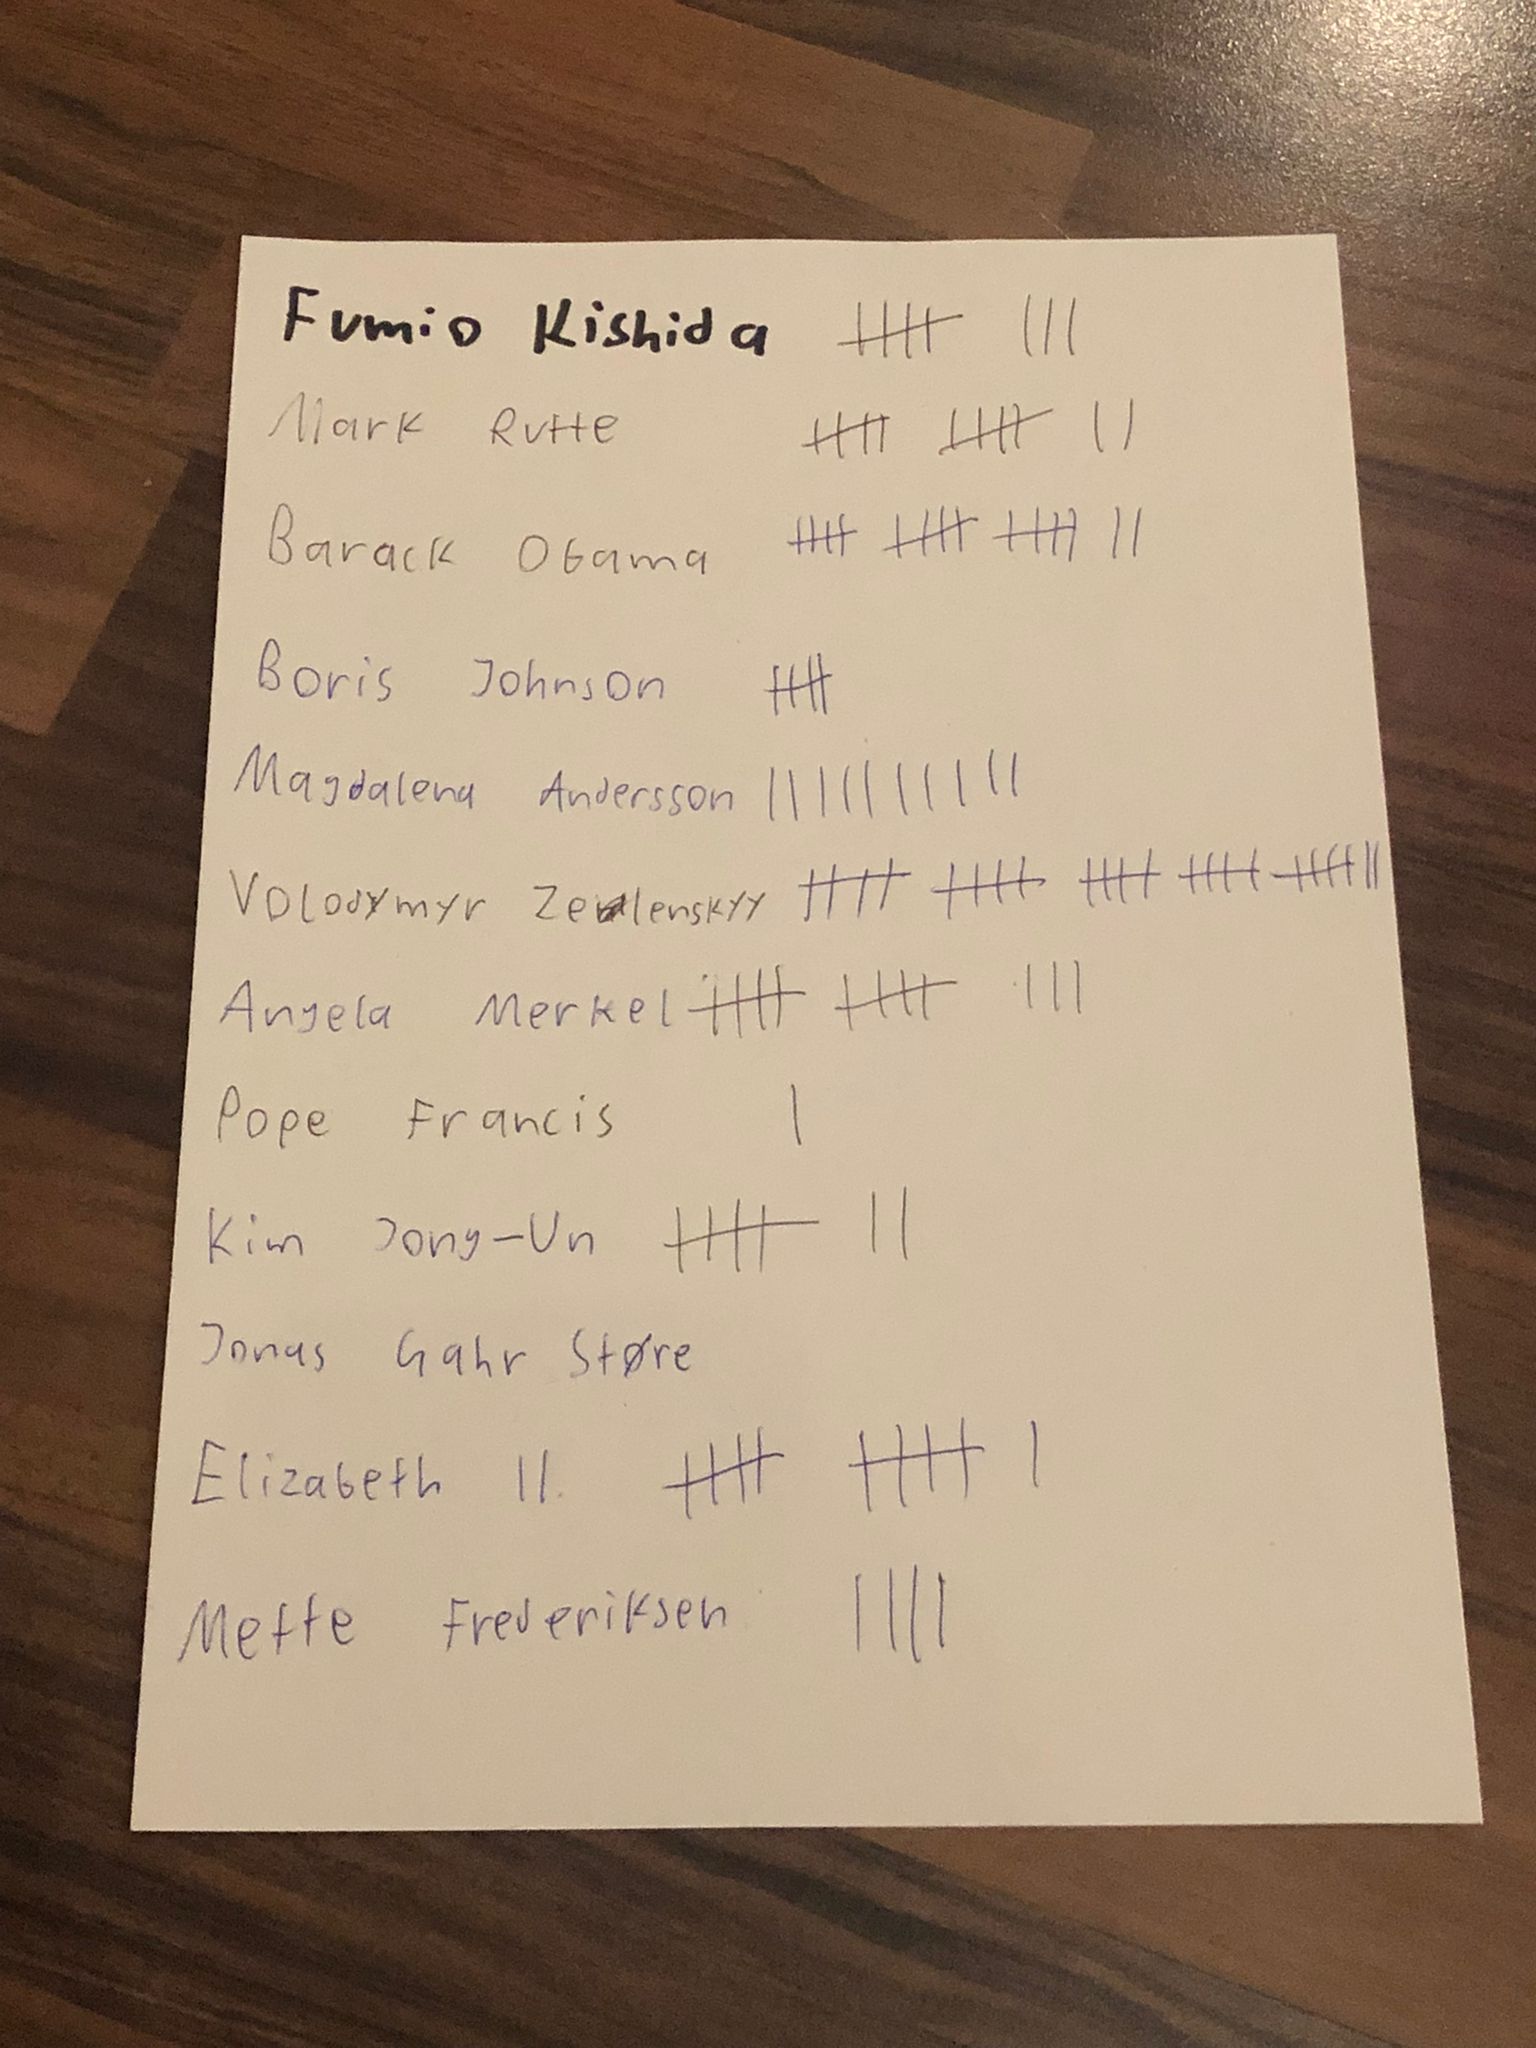 Fumio Kishida 卌 |||
Mark Rutte 卌 卌 ||
Barack Obama 卌 卌 卌 ||
Boris Johnson 卌
Magdalena Andersson ||||||||||
Volodymyr Zelenskyy 卌 卌 卌 卌 卌 ||
Angela Merkel 卌 卌 |||
Pope Francis |
Kim Jong-Un 卌 ||
Jonas Gahr Støre
Elizabeth II. 卌 卌 |
Mette Frederiksen ||||